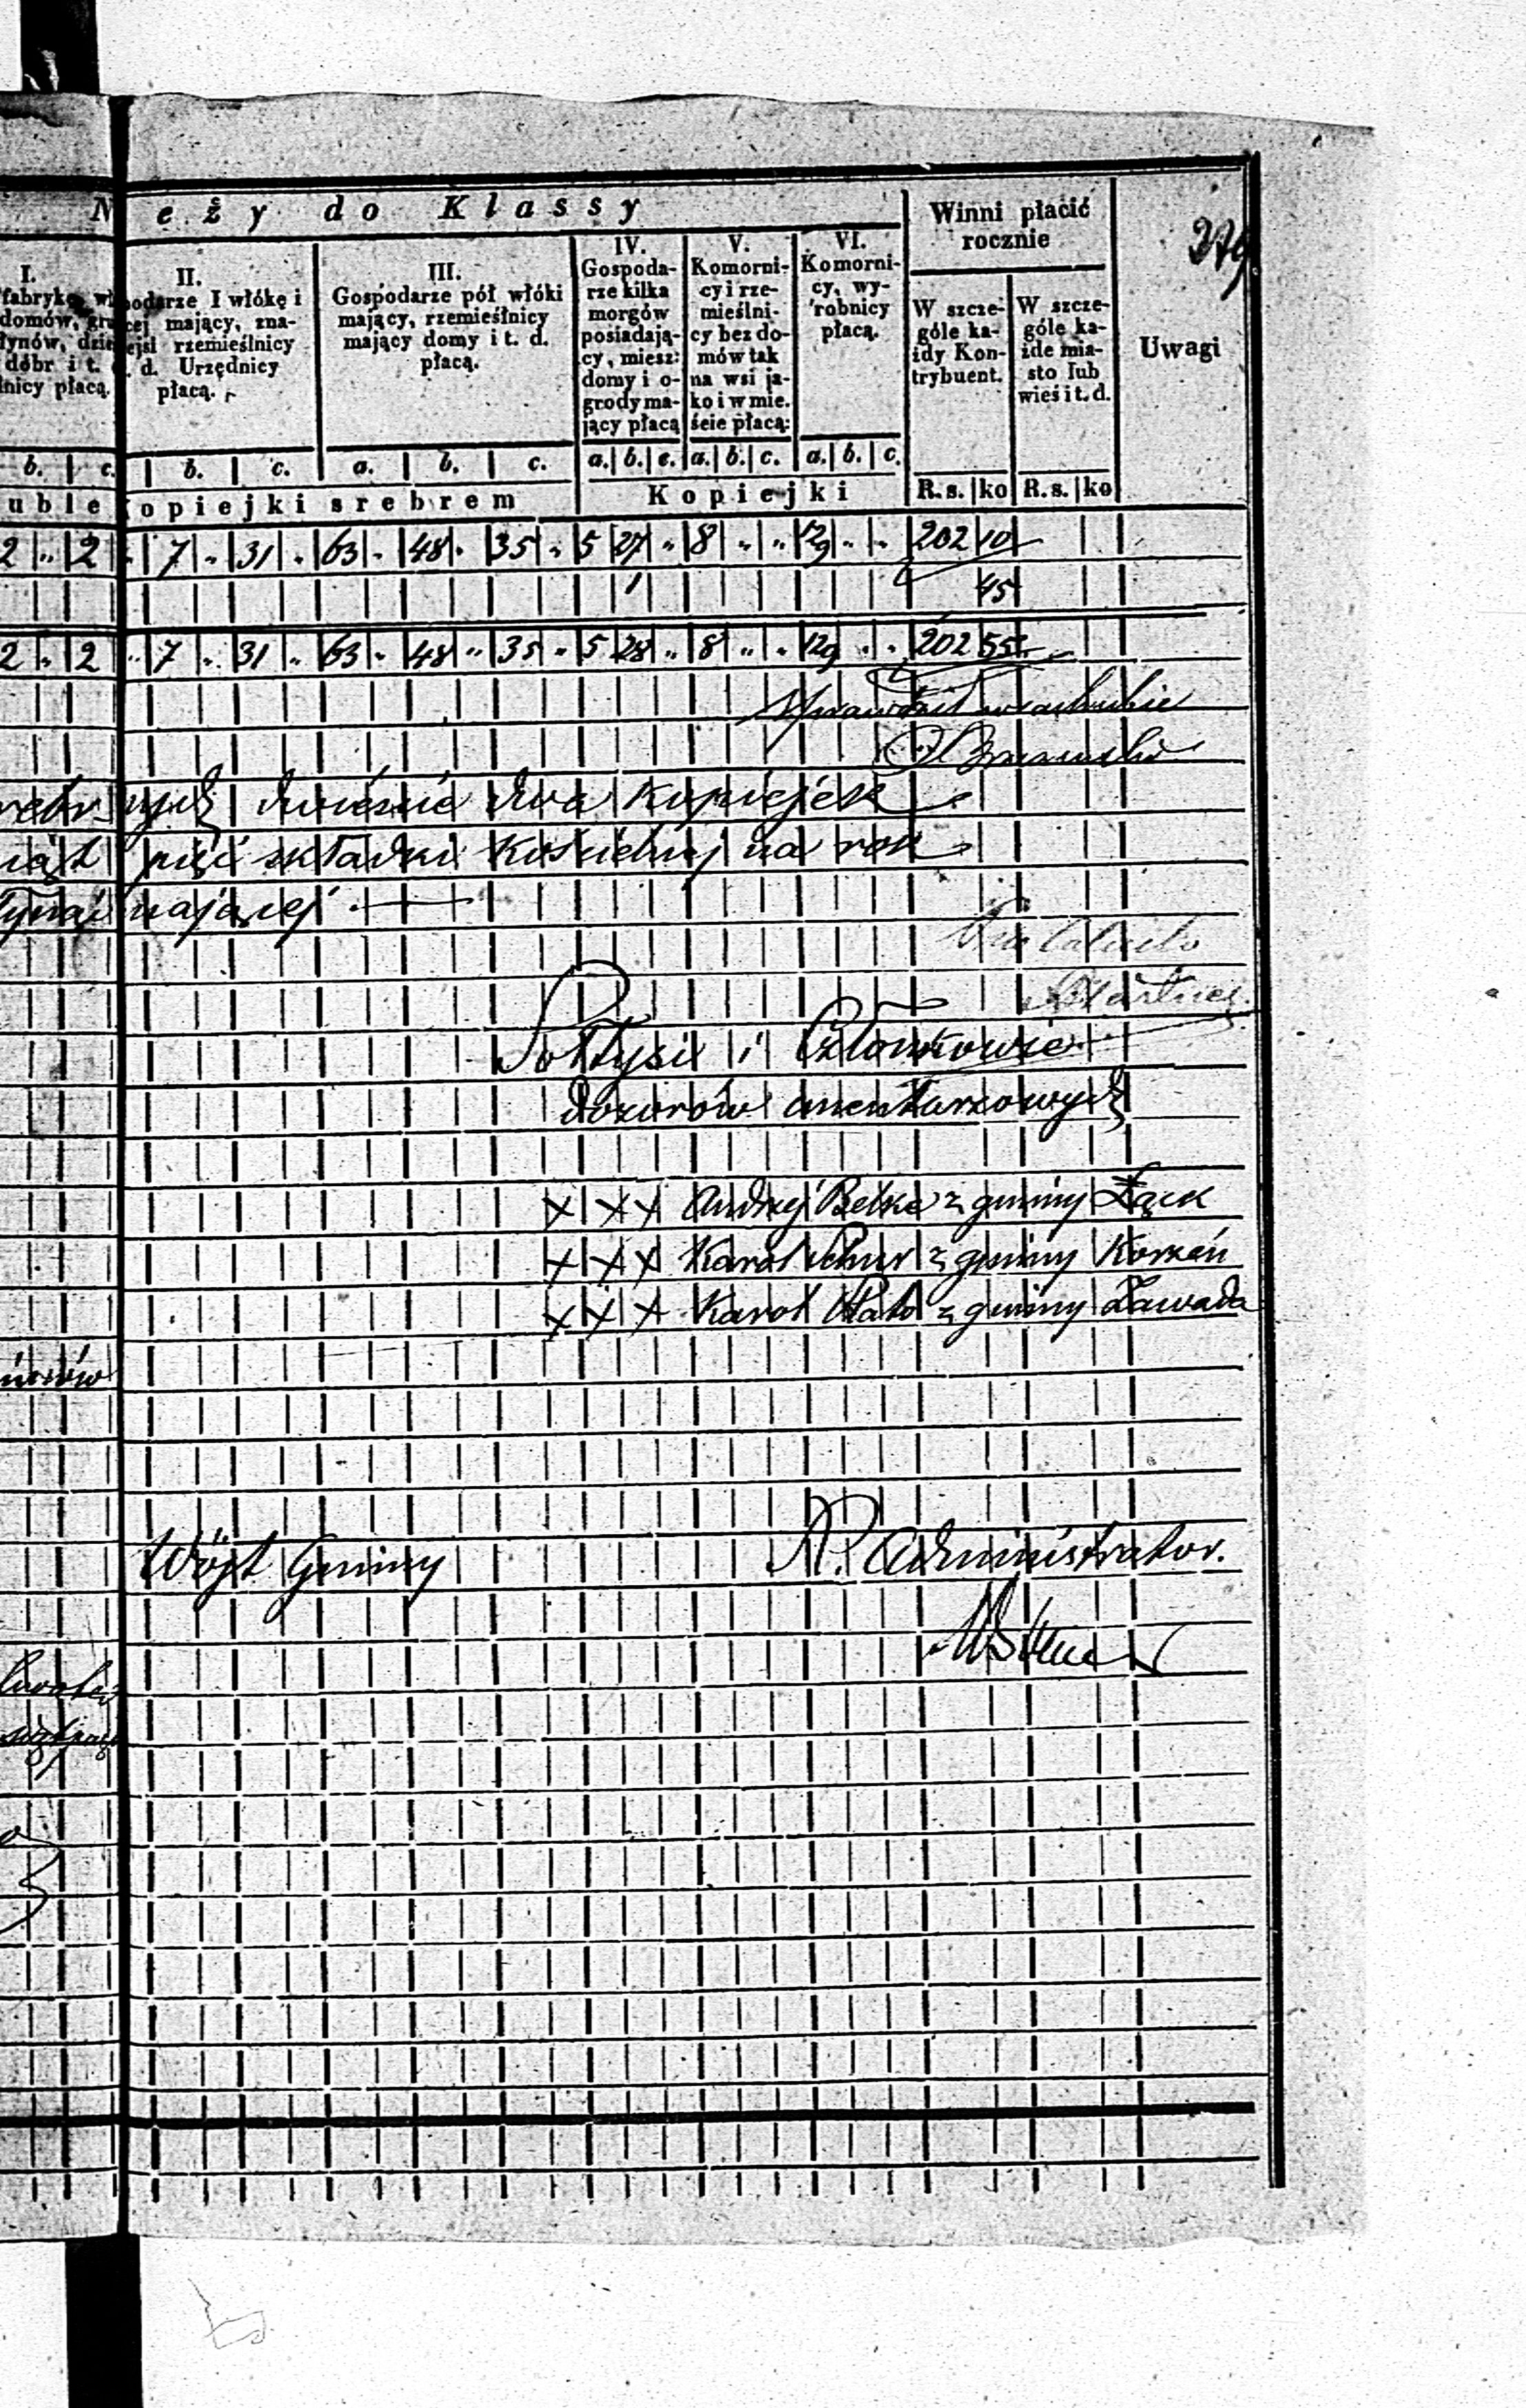 N eży do Klassy
Winni płacić
rocznie
Uwagi
279
I.
fabryk
domów, gru
łynów, dzie
dóbr i t.
lnicy płacą.
II.
podarze I włókę i
cej mający, zna-
ejsi rzemieślnicy
. d. Urzędnicy
płacą.
III.
Gospodarze pół włóki
mający, rzemieślnicy
mający domy i t. d.
płacą.
IV.
Gospoda-
rze kilka
morgów
posiadają-
cy, miesz:
domy i o-
grody ma-
jący płacą
V.
Komorni-
cy i rze-
mieślni-
cy bez do-
mów tak
na wsi ja-
ko i w mie.
ście płacą:
VI.
Komorni-
cy, wy-
robnicy
płacą.
W szcze-
góle ka-
żdy Kon-
trybuent.
W szcze-
góle ka-
żde mia-
sto lub
wieś i t. d.
b. c. b. c. a. b. c. a. b. c. a. b. c. a. b. c.
uble kopiejki srebrem Kopiejki R.s. ko R.s. ko
2 „ 2 „ 7 „ 31 „ 63 „ 48 „ 35 „ 5 27 „ 8 „ „ 129 „ „ 202 10
1 45
2 „ 2 „ 7 „ 31 „ 63 „ 48 „ 35 „ 5 28 „ 8 „ „ 129 „ „ 202 55
Sprawdził w rachubie
rebrnych dwieście dwa kopiejek
siąt pięć składki kościelnej na rok
nającej
Sołtysi i Członkowie
dozorów cmentarzowych
XXX Andrzej Belke z gminy Łąck
XXX Karol z gminy Korzeń
XXX Karol z gminy Zawada
Wójt Gminy
P. Administrator.